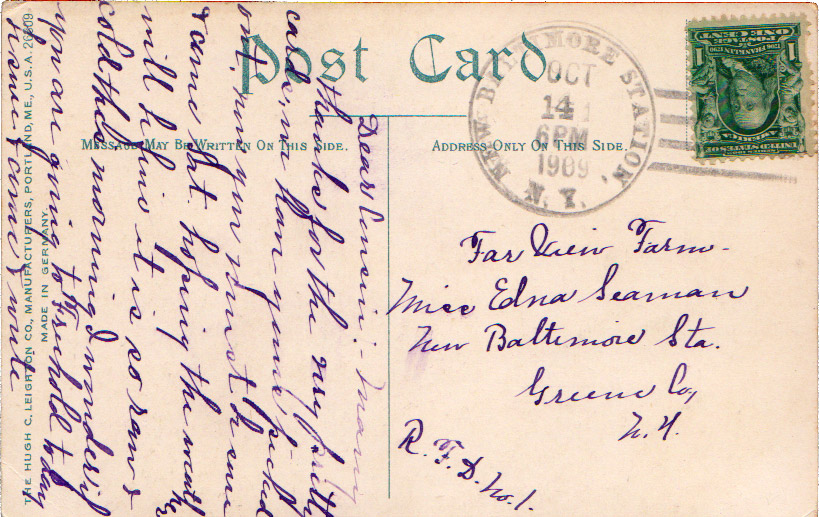 Post Card
Message May Be Written On This Side.
Address Only On This Side.
NEW BALTIMORE STATION,
N.Y.
OCT
14
6PM
1909
UNITED STATES OF AMERICA
1 1
POSTAGE
ONE CENT
Far View Farm-
Miss Edna Seaman
New Baltimore Sta.
Greene Co,
N.Y.
R.F.D. No. 1.
Dear Cousin:- Many
thanks for the very pretty
card,
out,
& come Sat. hoping the weather
will be fine it is so raw &
cold this morning I wonder if
you are going to Freehold to day
THE HUGH C. LEIGHTON CO., MANUFACTURERS, PORTLAND, ME., U.S.A. 26809
MADE IN GERMANY.